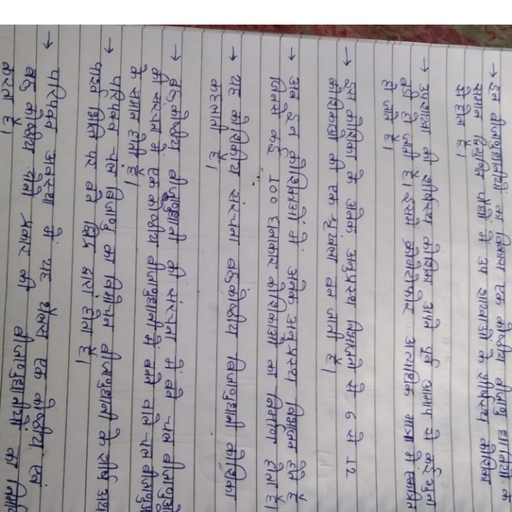 → इन बीजाणुधानीयों का विकास एक कोष्ठीय बीजाणु धानियों के
समान विभाजित पौधों में उप शाखाओं के शीर्षस्थ कोशिका
से होता है।
→ उपशाखा की शीर्षस्थ कोशिका अपने पूर्व आकार से कई गुना
बड़ी हो जाती है। इसमें क्रोमेटोफोर अत्यधिक मात्रा में एकत्रित
हो जाते हैं।
→ इस कोशिका के अनेक अनुप्रस्थ विभाजन से 6 से 12
कोशिकाओं की एक श्रृंखला बन जाती है।
→ अब इन कोशिकाओं में अनेक अनुप्रस्थ विभाजन होते हैं
जिससे कई 100 घनाकार कोशिकाओं का निर्माण होता है।
→ यह कोशिकीय संरचना बहुकोष्ठीय बिजाणुधानी कोशिका
कहलाती है।
→ बहुकोष्ठीय बीजाणुधानी की संरचना में बने चल बीजाणुओं
की संरचना में एक कोष्ठीय बीजाणुधानी में बनने वाले चल बीजाणुओं
के समान होती है।
→ परिपक्व चल बिजाणु का विमोचन बीजाणुधानी के शीर्ष अथवा
पार्श्व भित्ति पर बने छिद्र द्वारा होता है।
→ परिपक्व अवस्था में यह शैवाल एक कोष्ठीय एवं
बहु कोष्ठीय दोनों प्रकार की बीजाणुधानीयों का निर्माण
करता है।